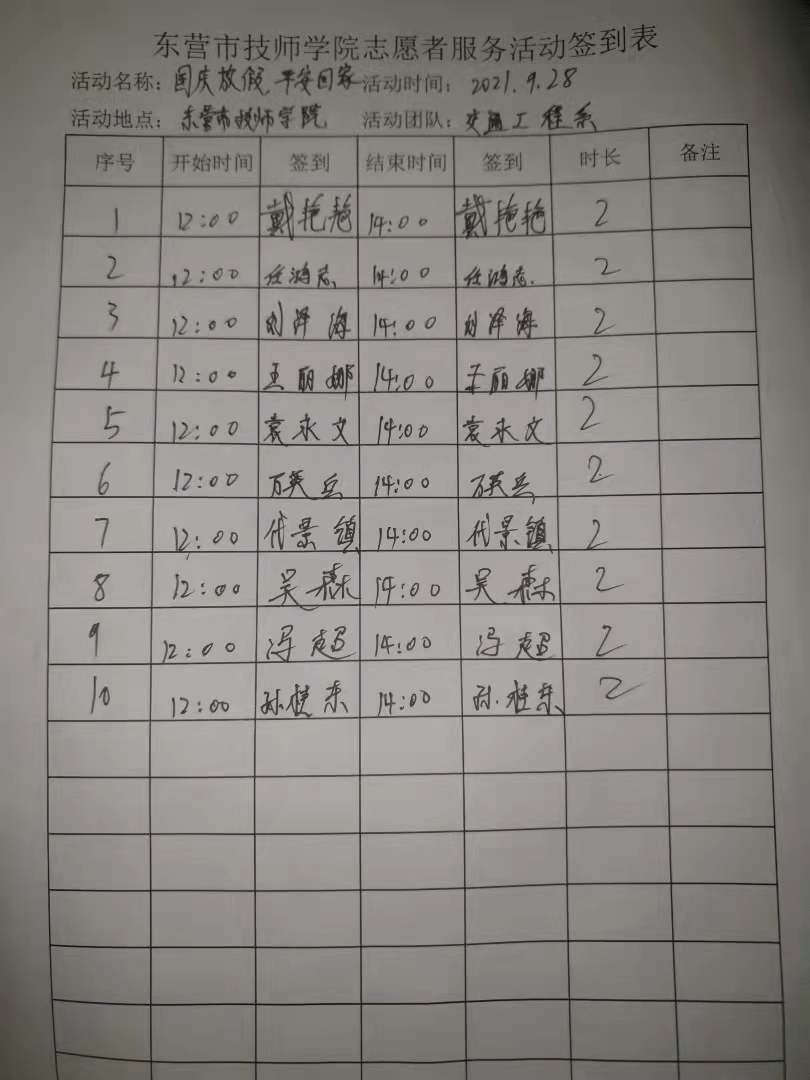 东营市技师学院志愿者服务活动签到表
活动名称：国庆放假，平安回家 活动时间：2021.9.28
活动地点：东营市技师学院 活动团队：交通工程系
序号 开始时间 签到 结束时间 签到 时长 备注
1 12:00 戴艳艳 14:00 戴艳艳 2
2 12:00 任鸿志 14:00 任鸿志 2
3 12:00 刘泽海 14:00 刘泽海 2
4 12:00 王丽娜 14:00 王丽娜 2
5 12:00 袁永文 14:00 袁永文 2
6 12:00 万英兵 14:00 万英兵 2
7 12:00 代景镇 14:00 代景镇 2
8 12:00 吴森 14:00 吴森 2
9 12:00 冯超 14:00 冯超 2
10 12:00 孙桂东 14:00 孙桂东 2